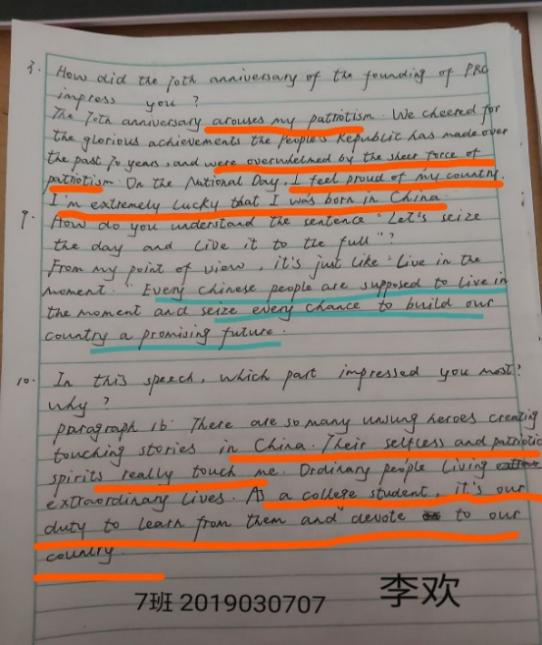 3. How did the 70th anniversary of the founding of PRC
impress you ?
The 70th anniversary arouses my patriotism. We cheered for
the glorious achievements the People's Republic has made over
the past 70 years, and were overwhelmed by the sheer force of
patriotism. On the National Day, I feel proud of my country.
I'm extremely lucky that I was born in China
9. How do you understand the sentence "Let's seize
the day and live it to the full"?
From my point of view, it's just like "Live in the
moment." Every Chinese people are supposed to live in
the moment and seize every chance to build our
country a promising future.
10. In this speech, which part impressed you most?
why ?
paragraph 16. There are so many unsung heroes creating
touching stories in China. Their selfless and patriotic
spirits really touch me. Ordinary people living
extraordinary lives. As a college student, it's our
duty to learn from them and devote to our
country.
7班 2019030707 李欢